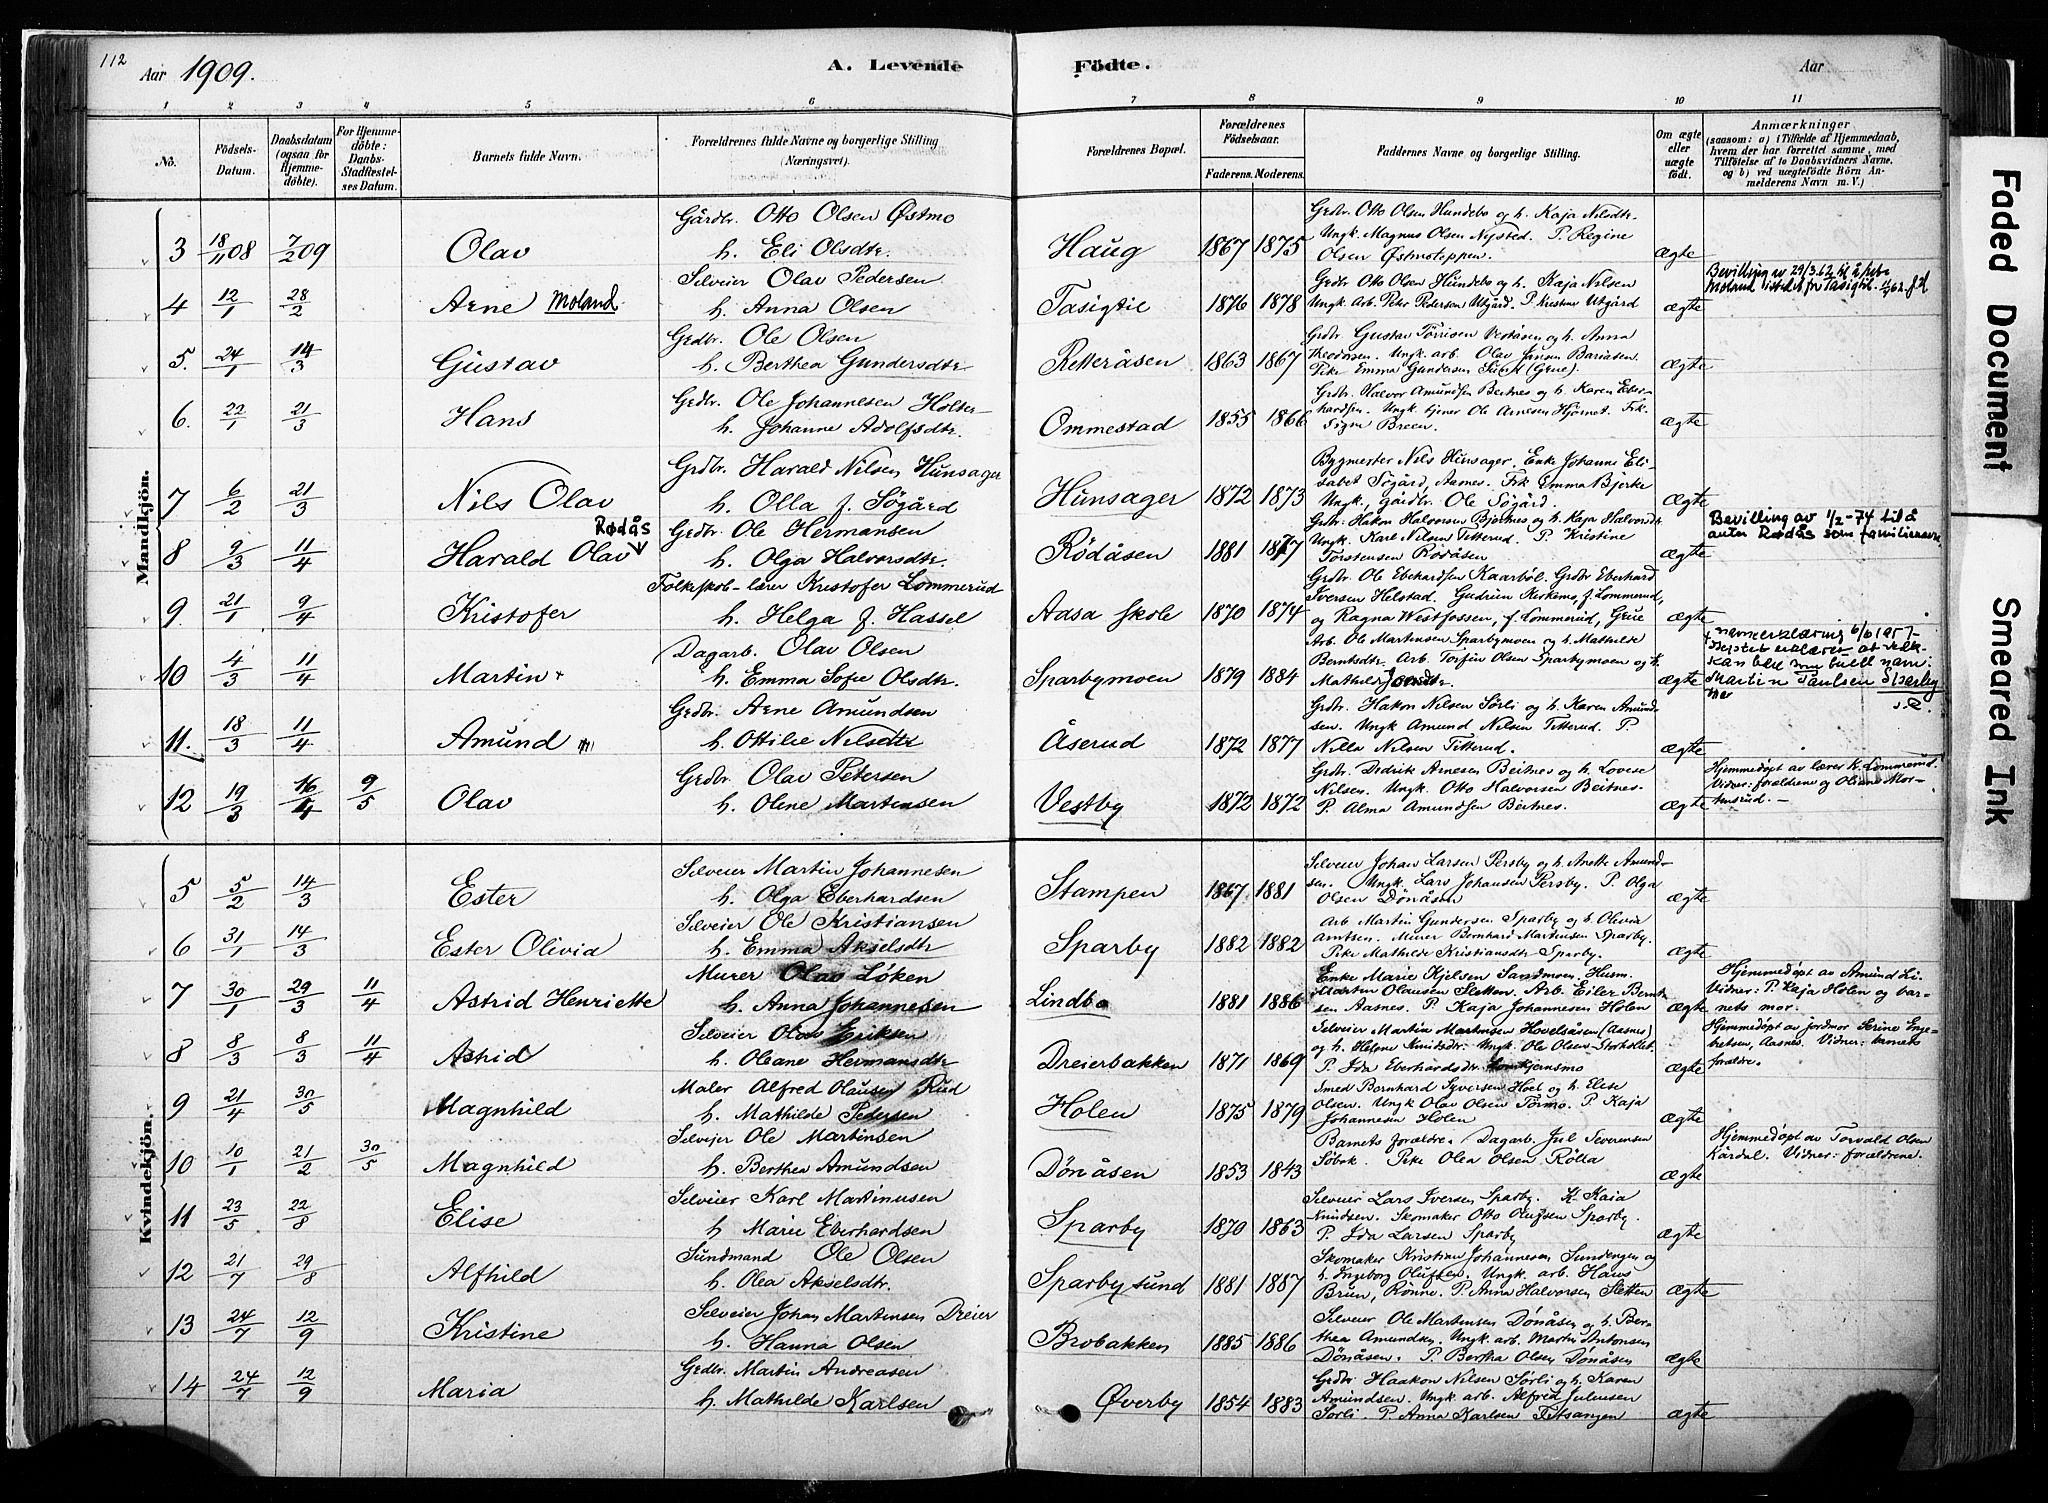 112
Aar 1909.
A. Levende Födte.
Aar
1 2 3 4 5 6 7 8 9 10 11
No.
Födsels-Datum.
Daabsdatum (ogsaa for Hjemmedøbte).
For Hjemmedöbte: Daabs-Stadfæstelses Datum.
Barnets fulde Navn.
Forældrenes fulde Navne og borgerlige Stilling (Næringsvei).
Forældrenes Bopæl.
Forældrenes Födselsaar.
Faderens. Moderens.
Faddernes Navne og borgerlige Stilling.
Om ægte eller uægte födt.
Anmærkninger
(saasom: a) i Tilfælde af Hjemmedaab, hvem der har forrettet samme, med Tilföielse af to Daabsvidners Navne, og b) ved uægtefödte Börn Anmelderens Navn m. V.)
Mandkjön.
3 18/11 08 7/2 09 Olav
Gårdbr. Otto Olsen Østmo
h. Eli Olsdtr.
Haug 1867 1875
Grdbr. Otto Olsen Hundebo og h. Kaja Nilsdtr.
Ungk. Magnus Olsen Nysted. P. Regine
Olsen Østmoteppen.
ægte
4 12/1 28/2 Arne Moland
Selveier Olav Pedersen
h. Anna Olsen
Tasigtil 1876 1878
Grdbr. Otto Olsen Hundebo og h. Kaja Nilsen
Ungk. Arb. Peter Pedersen Utgård. P. Kristine Utgård
ægte
5. 24/1 14/3 Gustav
Grdbr. Ole Olsen
h. Berthea Gundersdtr.
Retteråsen 1863 1867
Grdbr. Gustav Törrisen Veståsen og h. Anna
Theodorsen. Ungk. arb. Olav Jansen
Pike Emma Gundersen (Grue).
ægte
6. 22/1 21/3 Hans
Grdbr. Ole Johannesen Holter
h. Johanne Adolfsdtr.
Ommestad 1855 1866
Grdbr. Halvor Amundsen Beitnes og h. Karen Eberhardsen. Ungk. tjener Ole Arnesen Hjörnet. Frk.
Signe Breen.
ægte
7 6/2 21/3 Nils Olav
Grdbr. Harald Nilsen Hunsager
h. Olla f. Sögård
Hunsager 1872 1873
Bygmester Nils Hunsager. Enke Johanne Elisabet Sögård, Aasnes. Frk. Emma Bjerke
Ungk. gårdbr. Ole Sögård.
ægte
8 9/3 11/4 Harald Olav Rødås
Grdbr. Ole Hermansen
h. Olga Halvorsdtr.
Rödåsen 1881 1877
Grdbr. Håkon Halvorsen Bjertnes og h. Kaja Halvorsdtr.
Ungk. Karl Nilsen Titterud. P. Kristine
Torstensen Rödåsen
ægte
Bevilling av 1/2-74 til å
anta Rødås som familienavn.
9. 21/1 9/4 Kristofer
Folkeskolelærer Kristofer Lommerud
h. Helga f. Hassel
Aasa skole 1870 1874
Grdbr. Ole Eberhardsen Kaarböl. Grdbr. Eberhard
Iversen Helstad. Gudrun f. Lommerud,
og Ragna Westfossen, f. Lommerud, Grue
ægte
10 4/3 11/4 Martin +
Dagarb. Olav Olsen
h. Emma Sofie Olsdtr.
Sparbymoen 1879 1884
Arb. Ole Martinsen Sparbymoen og h. Mathilde
Berntsdtr. Arb. Torfin Olsen Sparbymoen og h.
Mathilde
ægte
11. 18/3 11/4 Amund
Grdbr. Arne Amundsen
h. Ottilie Nilsdtr.
Åserud 1872 1877
Grdbr. Hakon Nilsen Sörli og h. Karen Amundsen. Ungk. Amund Nilsen Titterud. P.
Nilla Nilsen Titterud.
ægte
12 19/3 16/4 9/5 Olav
Grdbr. Olav Petersen
h. Olene Martinsen
Vestby 1872 1872
Grdbr. Didrik Arnesen Beitnes og h. Lovise
Nilsen. Ungk. Otto Halvorsen Beitnes.
P. Alma Amundsen Beitnes.
ægte
Hjemmedøpt av lærer K. Lommerud.
Vidner: forældrene og Oliane
Kvindekjön.
5 5/2 14/3 Ester
Selveier Martin Johannesen
h. Olga Eberhardsen
Stampen 1867 1881
Selveier Johan Larsen Persby og h. Anette Amundsen. Ungk. Lars Johansen Persby. P. Olga
Olsen Dönåsen
ægte
6 31/1 14/3 Ester Olivia
Selveier Ole Kristiansen
h. Emma Akselsdtr.
Sparby 1882 1882
Arb. Martin Gundersen Sparby og h. Olivia
Arntsen. Murer Bernhard Martinsen Sparby.
Pike Mathilde Kristiansdtr. Sparby.
ægte
7 30/1 29/3 11/4 Astrid Henriette
Murer Olav Löken
h. Anna Johannesen
Lindbo 1881 1886
Enke Marie Kjelsen Sandmoen. Husm.
Martin Olausen Sletten. Arb. Eiler Berntsen Aasnes. P. Kaja Johannesen Holen
ægte
Hjemmedøpt av Amund
Vidner: P. Kaja Holen og barnets mor.
8 8/3 8/3 11/4 Astrid
Selveier Olav Eriksen
h. Oleane Hermansdtr.
Dreierbakken 1871 1869
Selveier Martin Martinsen Hovelsåsen (Aasnes)
og h. Helene Knudsdtr. Ungk. Ole Olsen
P. Ida Eberhardsdtr.
ægte
Hjemmedøpt av jordmor Serine Engebretsen, Aasnes. Vidner: barnets
forældre.
9 21/4 30/5 Magnhild
Maler Alfred Olausen Rud
h. Mathilde Pedersen
Holen 1875 1879
Smed Bernhard Syversen Hoel og h. Elise
Olsen. Ungk. Olav Olsen Törmo. P. Kaja
Johannesen Holen
ægte
10 10/1 21/2 30/5 Magnhild
Selveier Ole Martinsen
h. Berthea Amundsen
Dönåsen 1853 1843
Barnets forældre. Dagarb. Jul Severensen
Søbok. Pike Olea Olsen Rölla
ægte
Hjemmedøpt av Torvald Olsen
Vidner: forældrene.
11 23/5 22/8 Elise
Selveier Karl Martinusen
h. Marie Eberhardsen
Sparby 1870 1863
Selveier Lars Iversen Sparby. K. Kaia
Knudsen. Skomaker Otto Olufsen Sparby.
P. Ida Larsen Sparby
ægte
12 21/7 29/8 Alfhild
Sundmand Ole Olsen
h. Olea Akselsdtr.
Sparby sund 1881 1887
Skomaker Kristian Johannesen Sundengen og
h. Ingeborg Olufsen. Ungk. arb. Hans
Brun, Rönne. P. Anna Halvorsen Sletten
ægte
13 24/7 12/9 Kristine
Selveier Johan Martinsen Dreier
h. Hanna Olsen
Brobakken 1885 1886
Selveier Ole Martinsen Dönåsen og h. Berthea Amundsen. Ungk. arb. Martin Antonsen
Dönåsen. P. Bertha Olsen Dönåsen
ægte
14 24/7 12/9 Maria
Grdbr. Martin Andreasen
h. Mathilde Karlsen
Øverby 1854 1883
Grdbr. Haakon Nilsen Sörli og h. Karen
Amundsen. Ungk. arb. Alfred Juliusen
Sörli. P. Anna Karlsen Titsangen
ægte
Faded Document
Smeared Ink